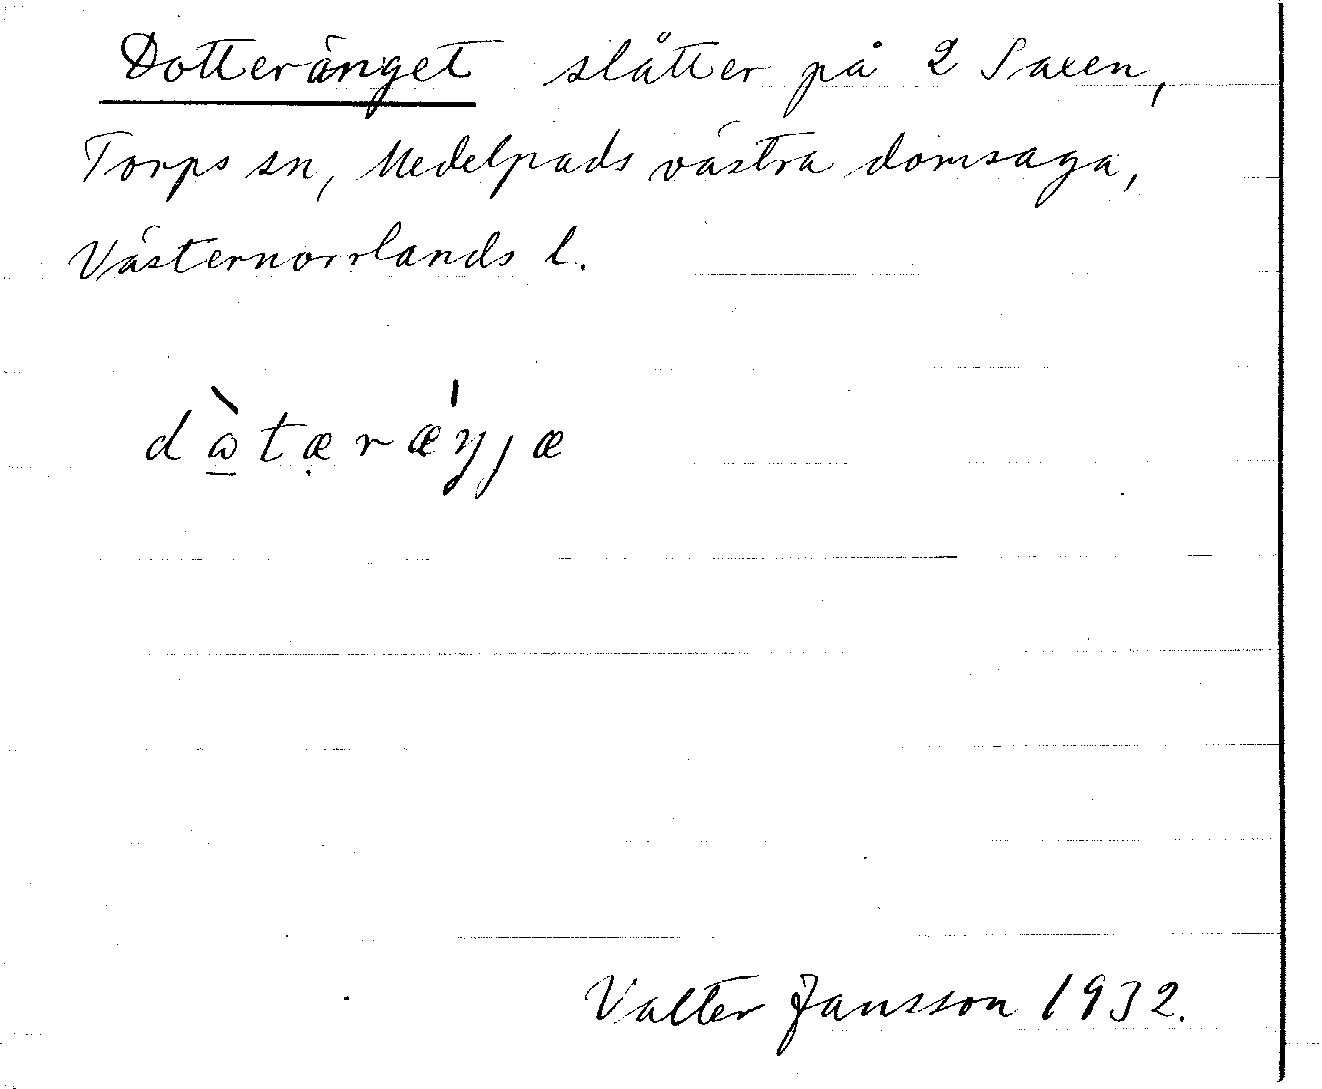 Dotteränget slåtter på 2 Saxen,
Torps sn, Medelpads västra domsaga,
Västernorrlands l.
dὼ̱tæ̣ræ̍ŋjæ
Valter Jansson 1932.